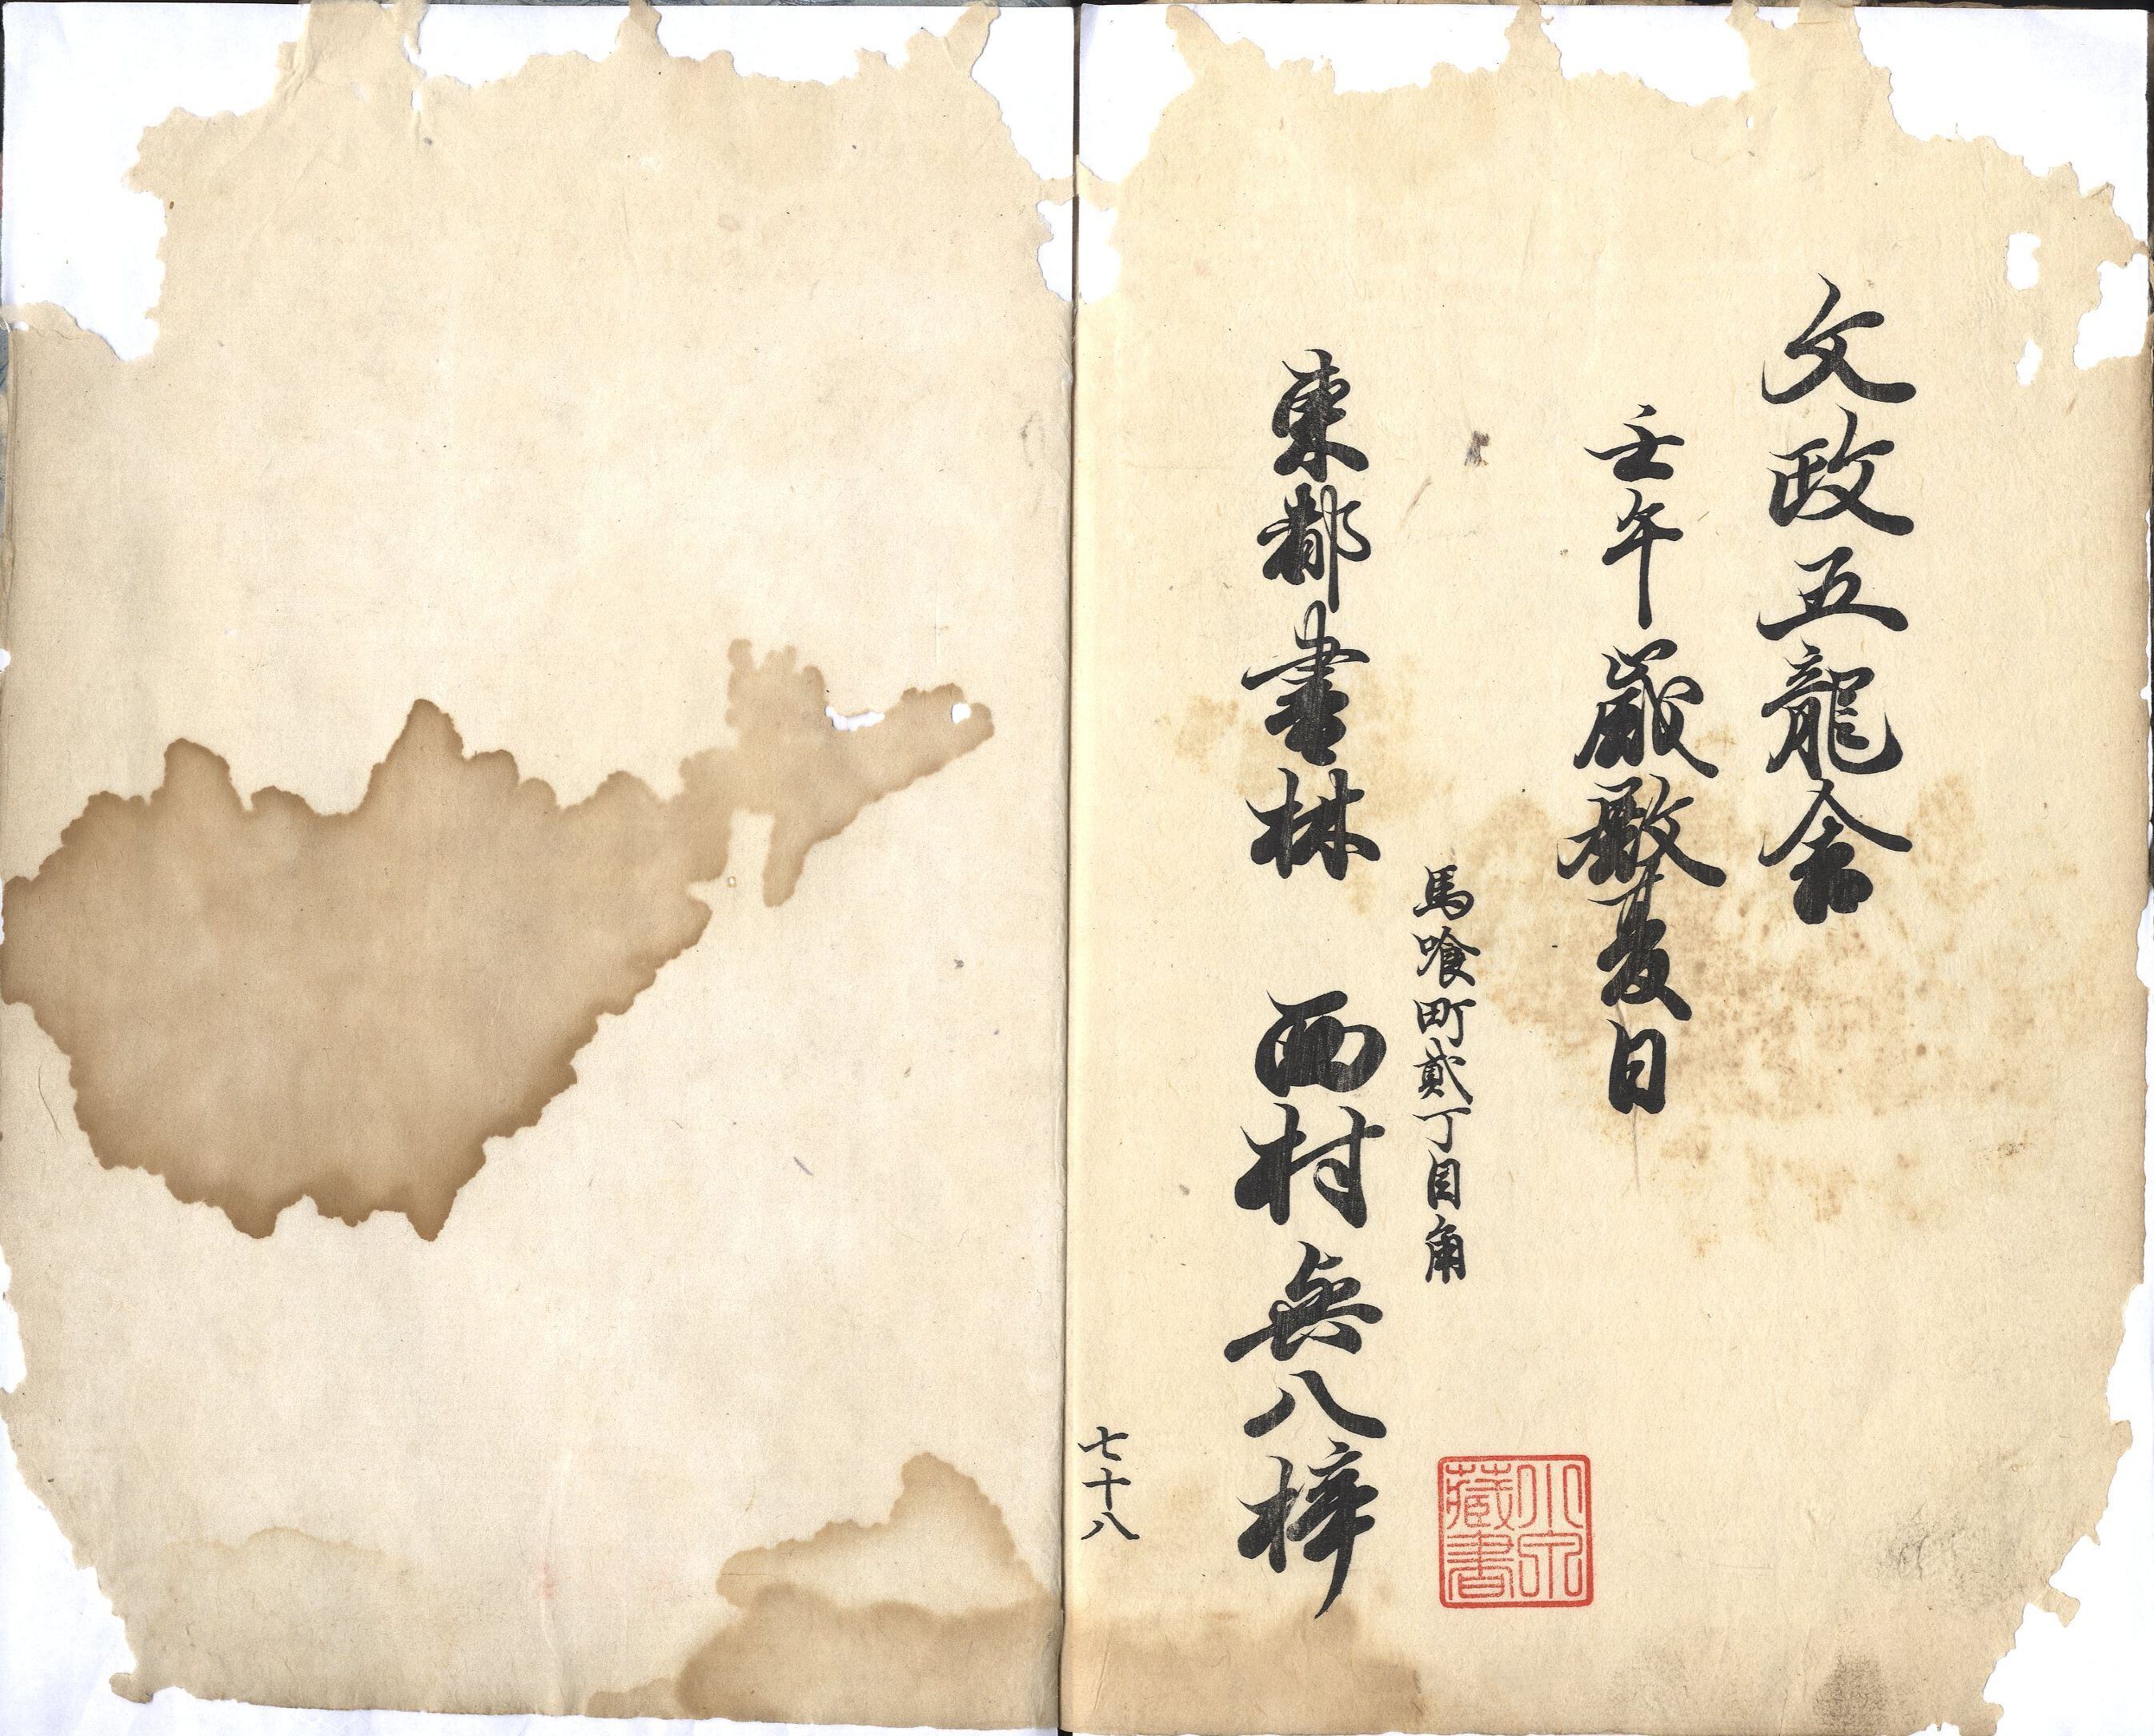 文政五龍舍
壬午歳夏日
馬喰町貳丁目角
東都書林 西村與八梓
七十八
小
藏書